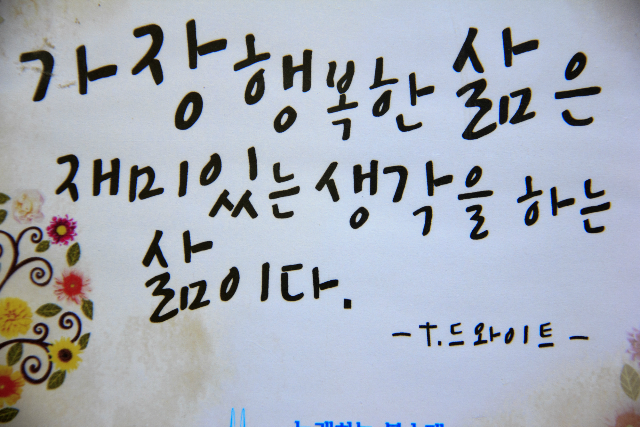 가장 행복한 삶은
재미있는 생각을 하는
삶이다.
- T.드와이트 -